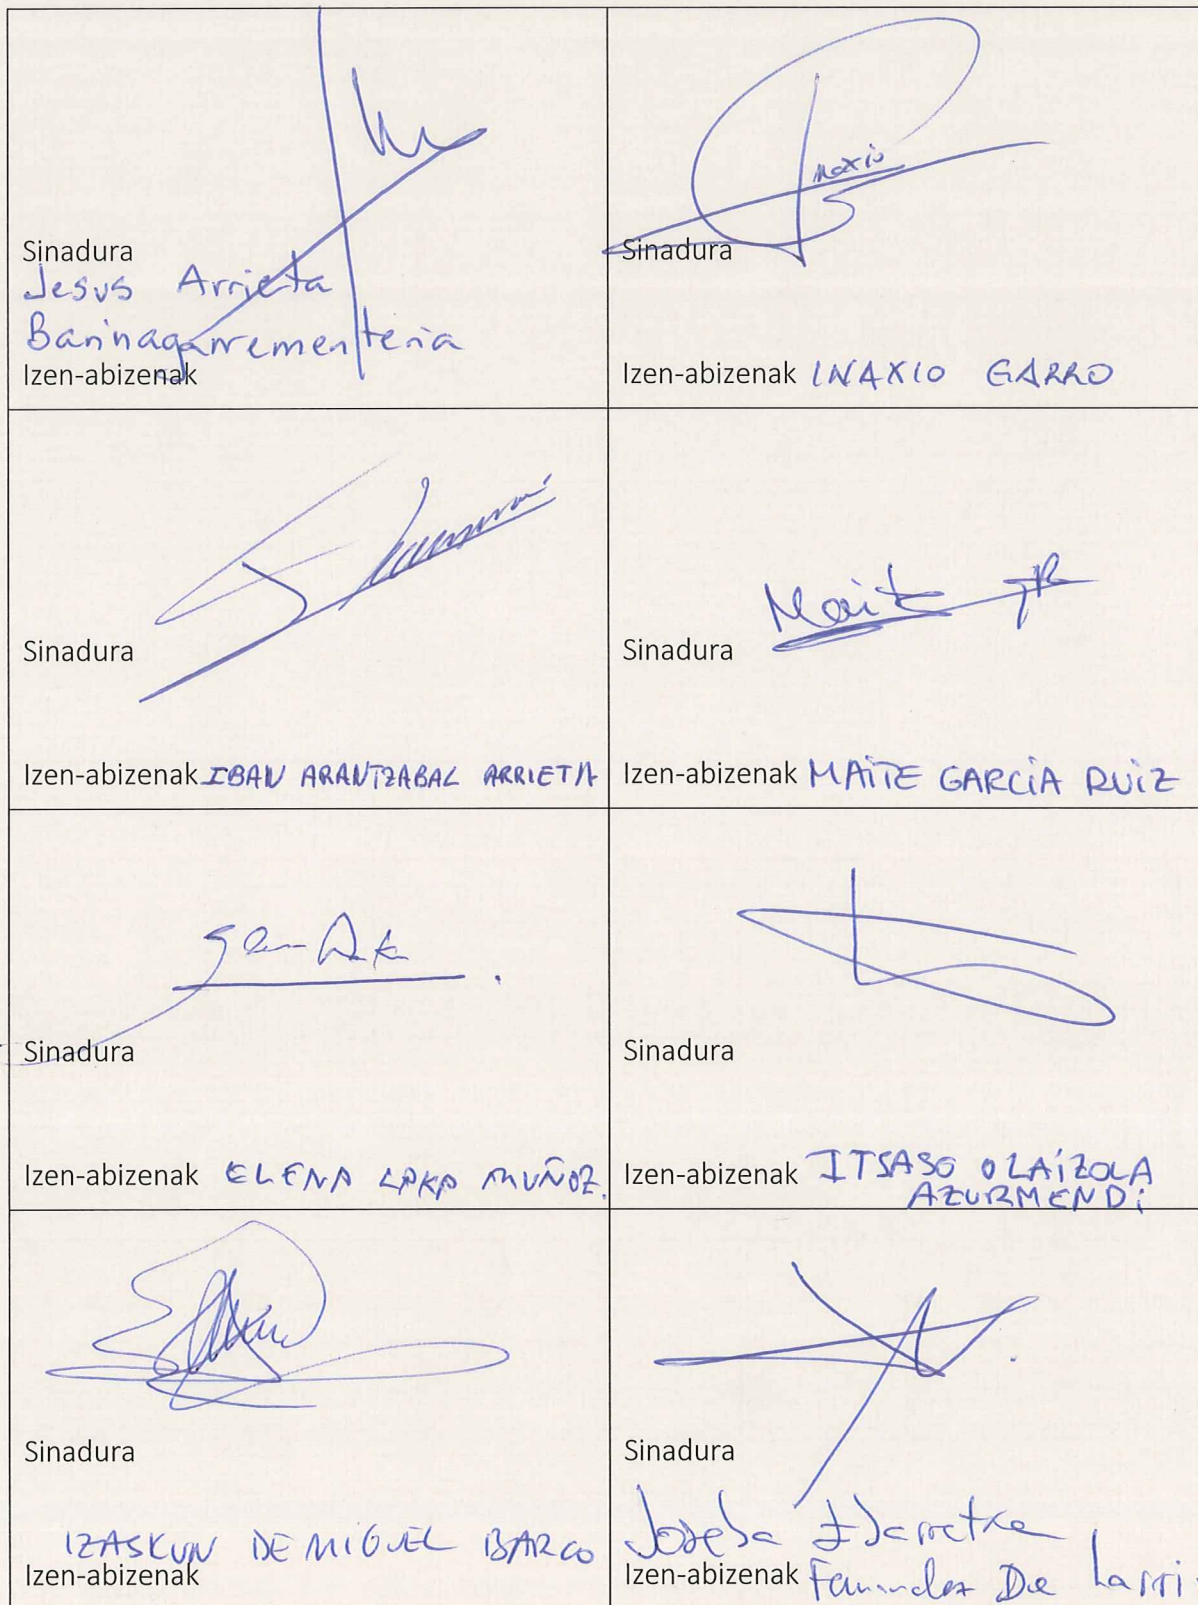 Sinadura
Jesus Arrieta
Barinagarrementeria
Izen-abizenak
Inaxio
Sinadura
Izen-abizenak INAXIO GARRO
Sinadura
Izen-abizenak IBAN ARANTZABAL ARRIETA
Maite GR
Sinadura
Izen-abizenak MAITE GARCIA RUIZ
Sinadura
Izen-abizenak ELENA LAKA MUÑOZ.
Sinadura
Izen-abizenak ITSASO OLAIZOLA
AZURMENDI
Sinadura
IZASKUN DE MIGUEL BARCO
Izen-abizenak
Sinadura
Joseba
Izen-abizenak Fernandez De Larri